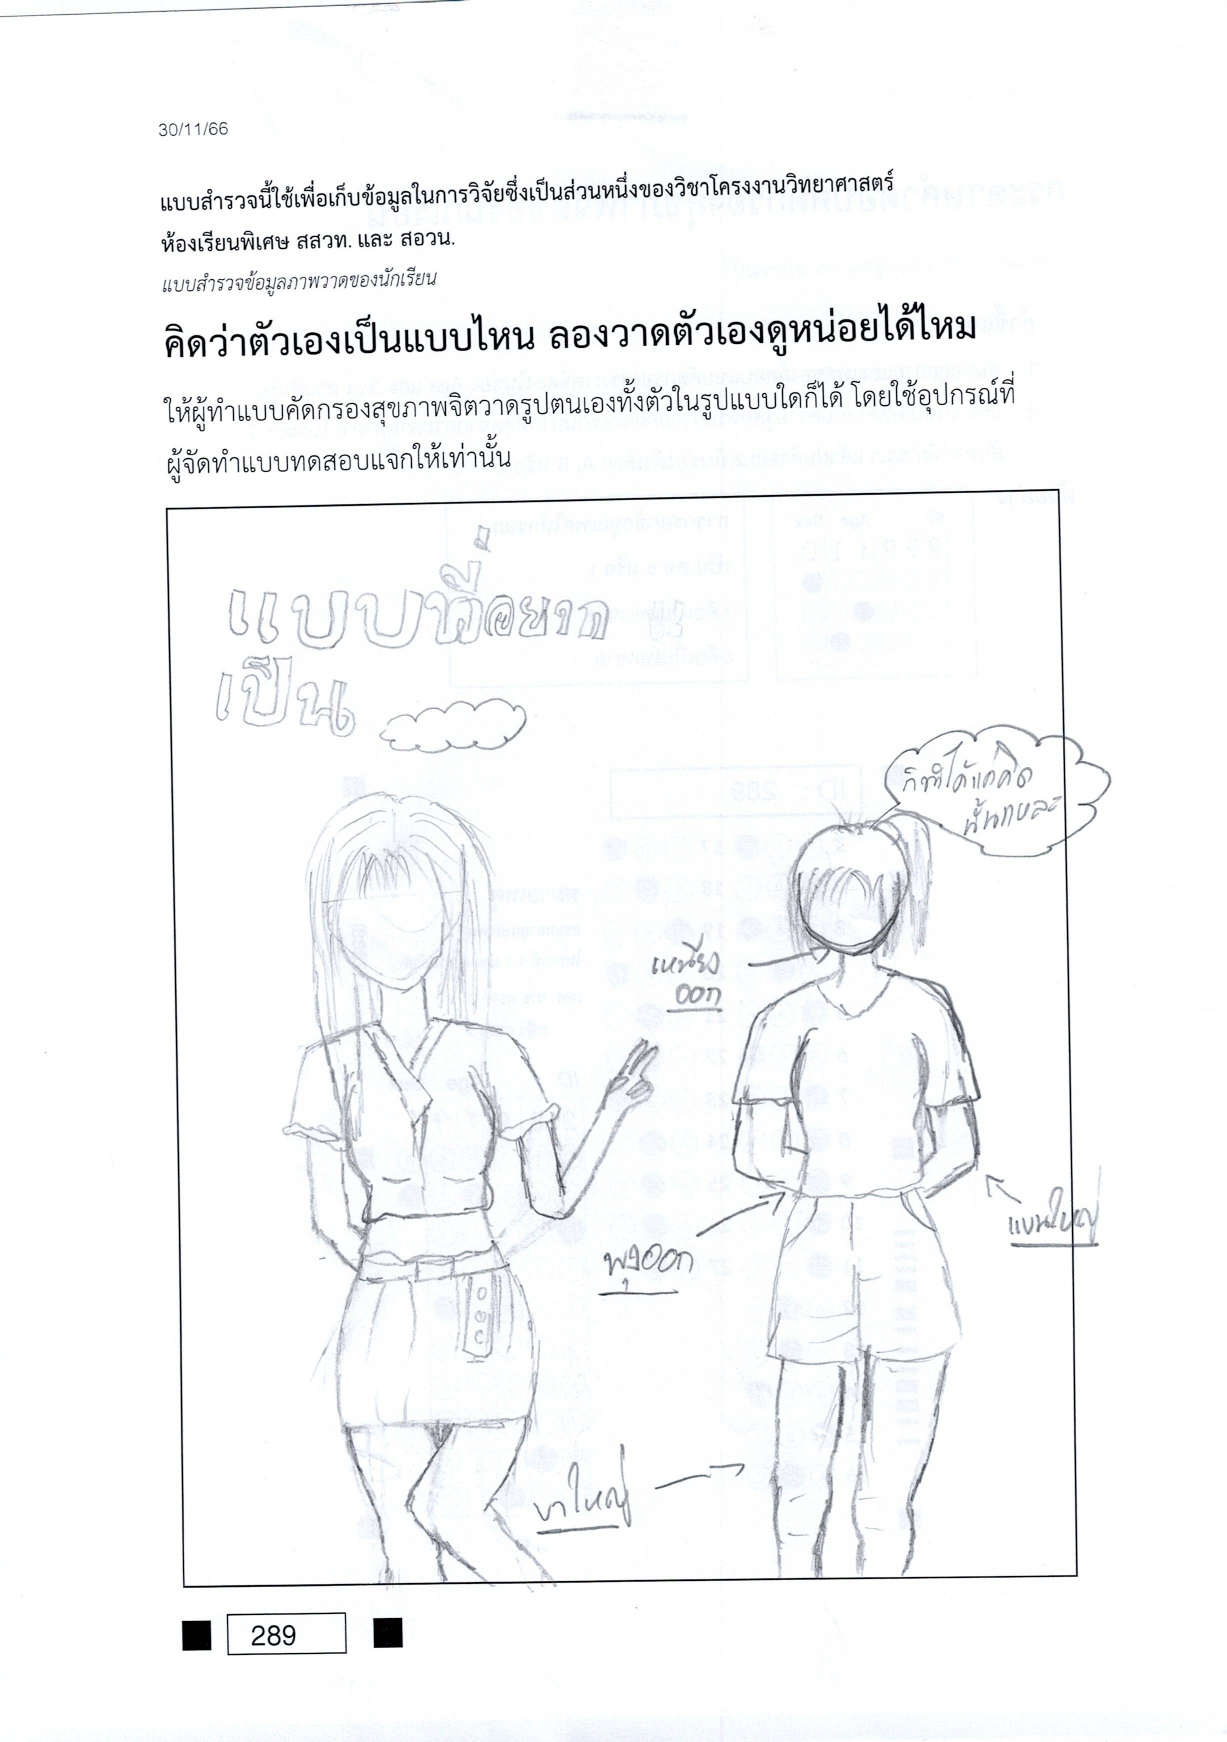 30/11/66
แบบสำรวจนี้ใช้เพื่อเก็บข้อมูลในการวิจัยซึ่งเป็นส่วนหนึ่งของวิชาโครงงานวิทยาศาสตร์
ห้องเรียนพิเศษ สสวท. และ สอวน.
แบบสำรวจข้อมูลภาพวาดของนักเรียน
คิดว่าตัวเองเป็นแบบไหน ลองวาดตัวเองดูหน่อยได้ไหม
ให้ผู้ทำแบบคัดกรองสุขภาพจิตวาดรูปตนเองทั้งตัวในรูปแบบใดก็ได้ โดยใช้อุปกรณ์ที่
ผู้จัดทำแบบทดสอบแจกให้เท่านั้น
แบบที่อยาก
เป็น
ก็ทำได้แค่คิด
นั้นแหละ
เหนียง
ออก
พุงออก
แขนใหญ่
ขาใหญ่
289